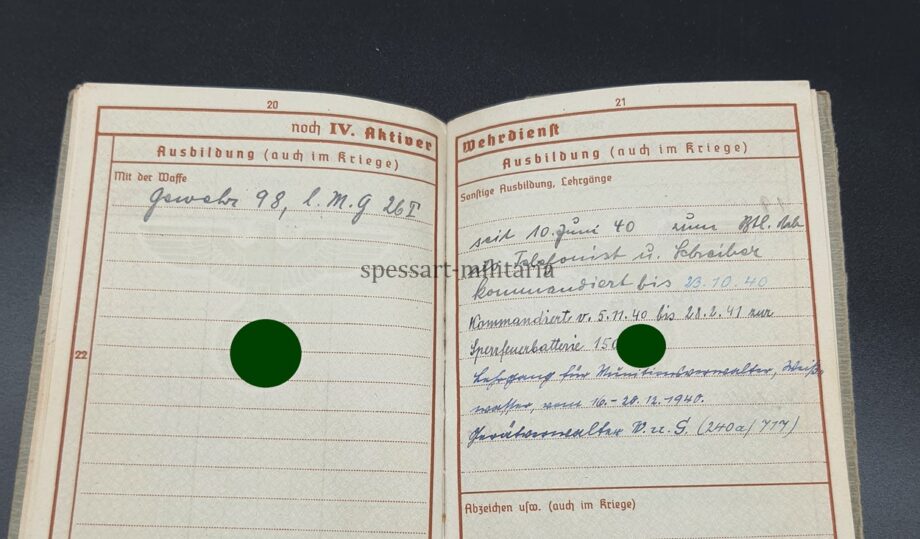 20
noch IV. Aktiver
Ausbildung (auch im Kriege)
Mit der Waffe
Gewehr 98, l. M.G 26 I
22
21
Wehrdienst
Ausbildung (auch im Kriege)
Sonstige Ausbildung, Lehrgänge
seit 10. Juni 40 zum Btl. Stab
als Telefonist u. Schreiber
spessart-militaria
kommandiert bis 23.10.40
Kommandiert v. 5.11.40 bis 28.2.41 zur
Sperrfeuerbatterie
Lehrgang für Munitionsverwalter, Weiß-
wasser, vom 16.-20.12.1940.
Geräteverwalter W.u.G. (240a/717)
Abzeichen usw. (auch im Kriege)